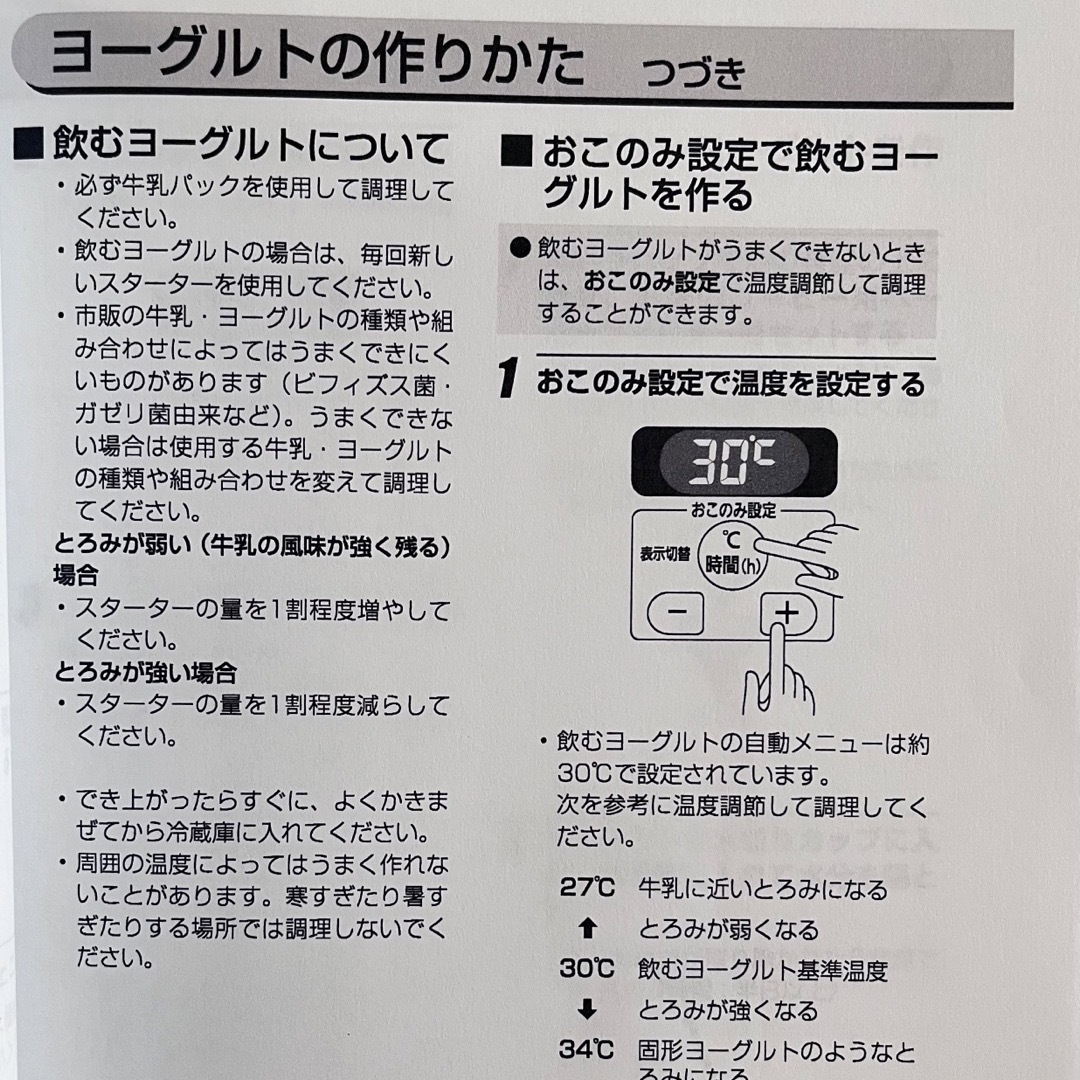 ヨーグルトの作りかた つづき
■飲むヨーグルトについて
・必ず牛乳パックを使用して調理して
ください。
・飲むヨーグルトの場合は、毎回新し
いスターターを使用してください。
・市販の牛乳・ヨーグルトの種類や組
み合わせによってはうまくできにく
いものがあります（ビフィズス菌・
ガゼリ菌由来など）。うまくできな
い場合は使用する牛乳・ヨーグルト
の種類や組み合わせを変えて調理し
てください。
とろみが弱い（牛乳の風味が強く残る）
場合
・スターターの量を1割程度増やして
ください。
とろみが強い場合
・スターターの量を1割程度減らして
ください。
・でき上がったらすぐに、よくかきま
ぜてから冷蔵庫に入れてください。
・周囲の温度によってはうまく作れな
いことがあります。寒すぎたり暑す
ぎたりする場所では調理しないでく
ださい。
■おこのみ設定で飲むヨー
グルトを作る
●飲むヨーグルトがうまくできないとき
は、おこのみ設定で温度調節して調理
することができます。
1 おこのみ設定で温度を設定する
30℃
おこのみ設定
表示切替
℃
時間(h)
− +
・飲むヨーグルトの自動メニューは約
30℃で設定されています。
次を参考に温度調節して調理してく
ださい。
27℃ 牛乳に近いとろみになる
⬆ とろみが弱くなる
30℃ 飲むヨーグルト基準温度
⬇ とろみが強くなる
34℃ 固形ヨーグルトのようなと
ろみになる